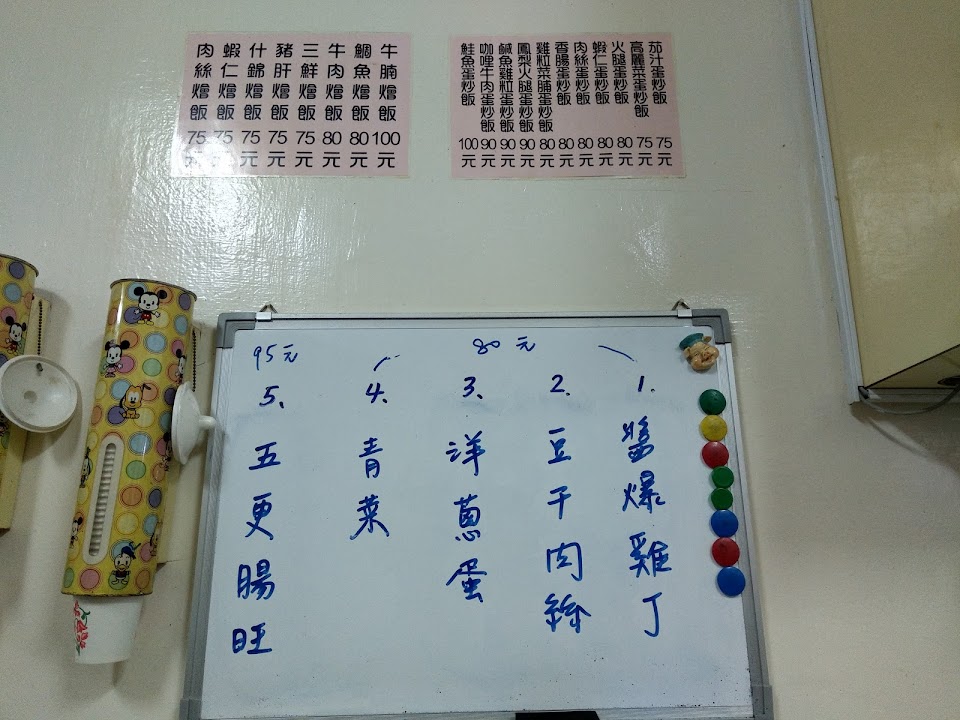 茄汁蛋炒飯75元
高麗菜蛋炒飯75元
火腿蛋炒飯80元
蝦仁蛋炒飯80元
肉絲蛋炒飯80元
香腸蛋炒飯80元
雞粒菜脯蛋炒飯80元
鳳梨火腿蛋炒飯90元
鹹魚雞粒蛋炒飯90元
咖哩牛肉蛋炒飯90元
鮭魚蛋炒飯100元
牛腩燴飯100元
鯛魚燴飯80元
牛肉燴飯80元
三鮮燴飯75元
豬肝燴飯75元
什錦燴飯75元
蝦仁燴飯75元
肉絲燴飯75元
80元
1、醬爆雞丁
2、豆干肉絲
3、洋蔥蛋
4、青菜
95元
5、五更腸旺